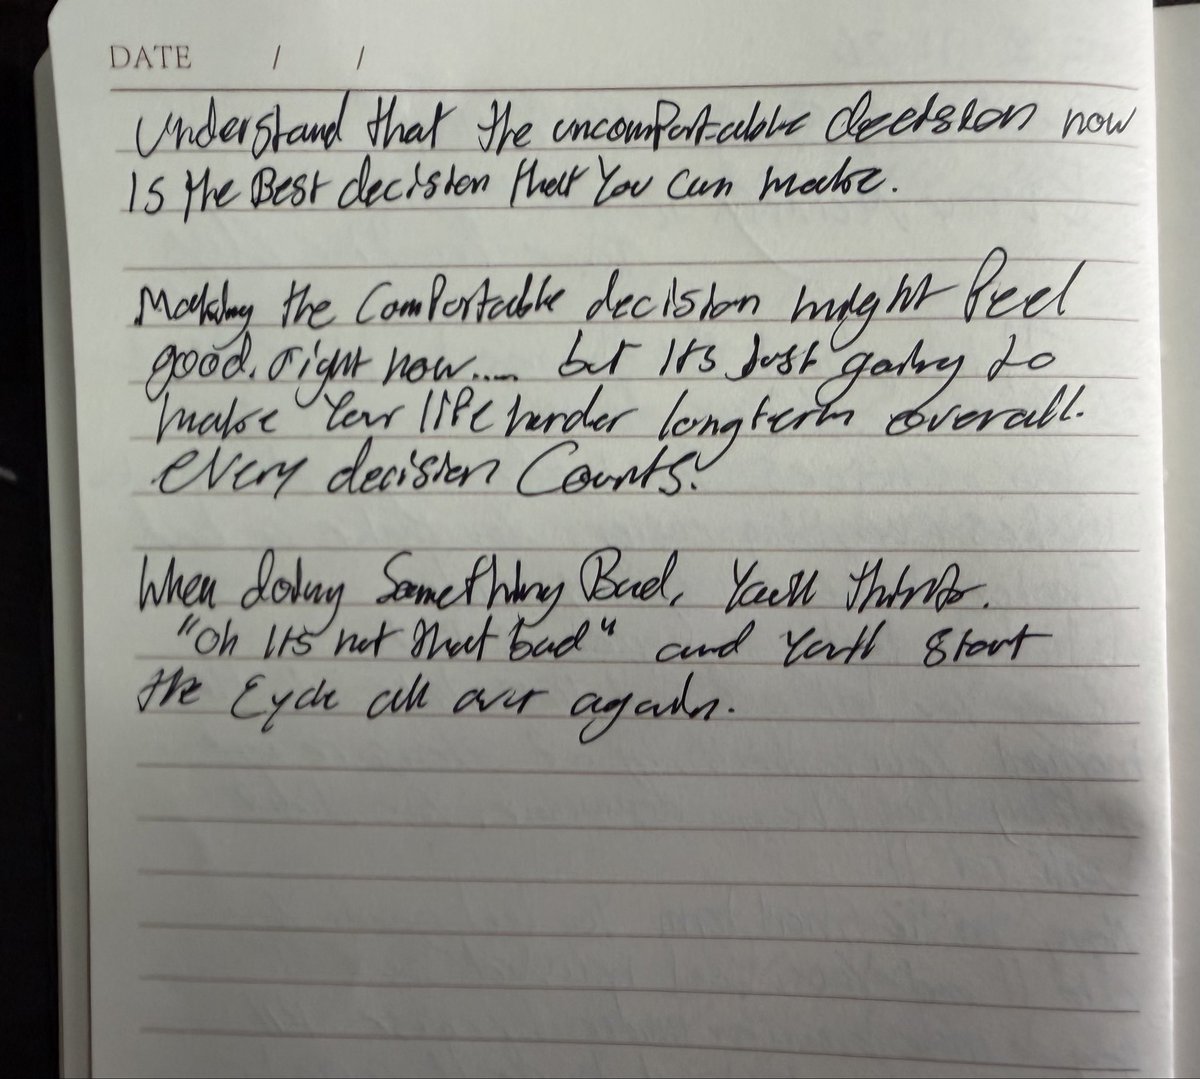 DATE / /
Understand that the uncomfortable decision now
Is the Best decision that You can make.
Making the Comfortable decision might feel
good, right now.... but Its Just going to
make Your life harder longterm overall.
every decision Counts!
When doing Something Bad, You'll think.
"Oh Its not that bad" and You'll Start
the Cycle all over again.